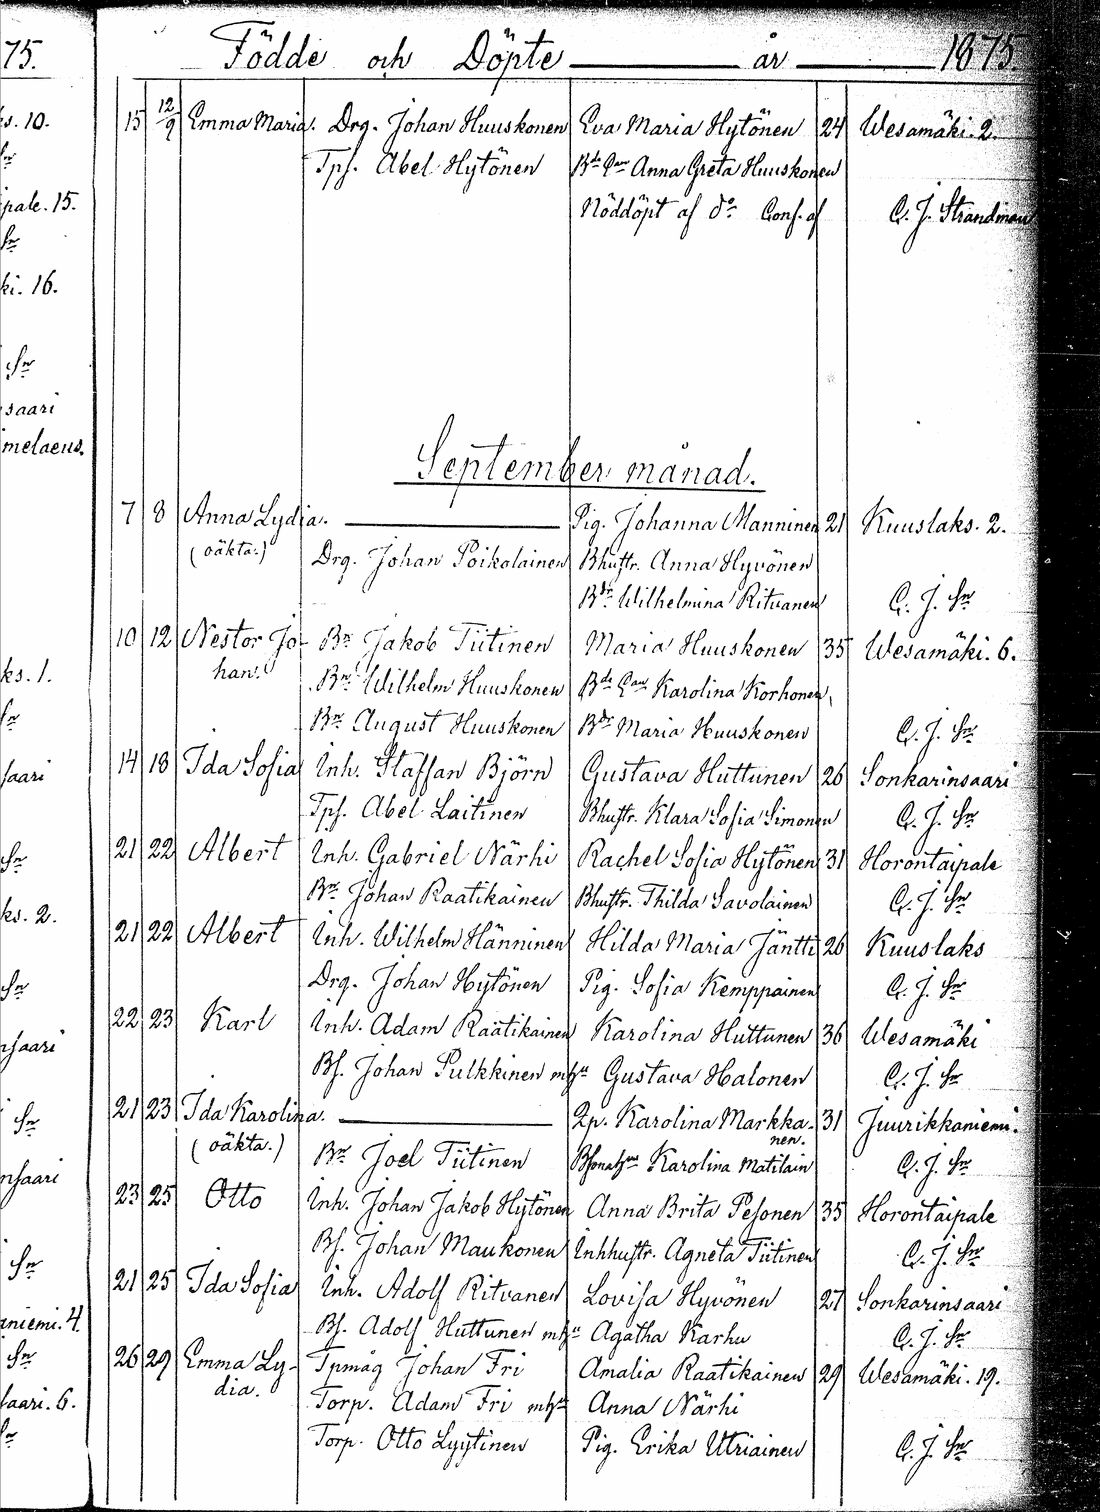 75.
Födde och Döpte år 1875.
15 12/9 Emma Maria. Drg. Johan Huuskonen Eva Maria Hytönen 24 Wesamäki. 2.
ks. 10.
Tpf. Abel Hytönen Anna Greta Huuskonen
pale. 15.
Nöddöpt af do Conf. af C. J. Strandman
ki. 16.
saari
melaeus.
September månad.
7 8 Anna Lydia. Pig. Johanna Manninen 21 Kuuslaks. 2.
(oäkta.) Drg. Johan Poikalainen Bhustr. Anna Hyvönen
Bdr Wilhelmina Ritvanen C. J. Sn
10 12 Nestor Jo- Bn Jakob Tiitinen Maria Huuskonen 35 Wesamäki. 6.
ks. 1.
han. Bn Wilhelm Huuskonen Karolina Korhonen
Bn August Huuskonen Bdr Maria Huuskonen C. J. Sn
14 18 Ida Sofia Inh. Staffan Björn Gustava Huttunen 26 Sonkarinsaari
saari
Tpf. Abel Laitinen Bhustr. Klara Sofia Simonen C. J. Sn
21 22 Albert Inh. Gabriel Närhi Rachel Sofia Hytönen 31 Horontaipale
Bn Johan Raatikainen Bhustr. Thilda Savolainen C. J. Sn
ks. 2.
21 22 Albert Inh. Wilhelm Hänninen Hilda Maria Jäntti 26 Kuuslaks
Drg. Johan Hytönen Pig. Sofia Kemppainen C. J. Sn
22 23 Karl Inh. Adam Raatikainen Karolina Huttunen 36 Wesamäki
nsaari
Bf. Johan Pulkkinen Gustava Halonen C. J. Sn
21 23 Ida Karolina. Karolina Markka- 31 Juurikkaniemi.
nen.
(oäkta.) Bn Joel Tiitinen Karolina Matilain C. J. Sn
nsaari
23 25 Otto Inh. Johan Jakob Hytönen Anna Brita Pesonen 35 Horontaipale
Bf. Johan Maukonen Inhhustr. Agneta Tiitinen C. J. Sn
21 25 Ida Sofia Inh. Adolf Ritvanen Lovisa Hyvönen 27 Sonkarinsaari
aniemi. 4.
Bf. Adolf Huttunen Agatha Karhu C. J. Sn
26 29 Emma Ly- Tpmåg Johan Fri Amalia Raatikainen 29 Wesamäki. 19.
dia.
saari. 6.
Torp. Adam Fri Anna Närhi
Torp. Otto Lyytinen Pig. Erika Utriainen C. J. Sn